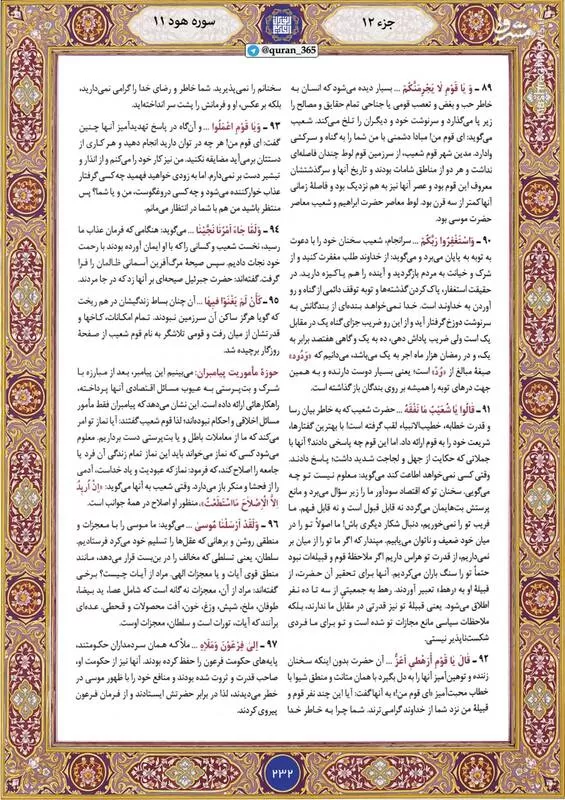 جزء ۱۲
سوره هود ۱۱
@quran_365
مشرق
۸۹ ـ وَ یَا قَوْمِ لَا یَجْرِمَنَّکُمْ ... بسیار دیده می‌شود که انسان به
خاطر حب و بغض و تعصب قومی یا جناحی تمام حقایق و مصالح را
زیر پا می‌گذارد و سرنوشت خود و دیگران را تلخ می‌کند. شعیب
می‌گوید: ای قوم من! مبادا دشمنی با من شما را به گناه و سرکشی
وادارد. مدین شهر قوم شعیب، از سرزمین قوم لوط چندان فاصله‌ای
نداشت و هر دو از مناطق شامات بودند و تاریخ آنها و سرگذشتشان
معروف این قوم بود و عصر آنها نیز به هم نزدیک بود و فاصلۀ زمانی
آنها کمتر از سه قرن بود. لوط معاصر حضرت ابراهیم و شعیب معاصر
حضرت موسی بود.
۹۰ ـ وَاسْتَغْفِرُوا رَبَّکُمْ... سرانجام، شعیب سخنان خود را با دعوت
به توبه به پایان می‌برد و می‌گوید: از خداوند طلب مغفرت کنید و از
شرک و خیانت به مردم بازگردید و آینده را هم پاکیزه دارید. در
حقیقت استغفار، پاک کردن گذشته‌ها و توبه توقف دائمی از گناه و رو
آوردن به خداوند است. خدا نمی‌خواهد بنده‌ای از بندگانش به
سرنوشت دوزخ گرفتار آید و از این رو ضریب جزای گناه یک در مقابل
یک است ولی ضریب پاداش دهی، ده به یک و گاهی هفتصد برابر به
یک، و در رمضان هزار ماه اجر به یک می‌باشد، می‌دانیم که «وَدُود»
صیغۀ مبالغ از «وُدّ» است؛ یعنی بسیار دوست دارنده و به همین
جهت درهای توبه را همیشه بر روی بندگان باز گذاشته است.
۹۱ ـ قَالُوا یَا شُعَیْبُ مَا نَفْقَهُ ... حضرت شعیب که به خاطر بیان رسا
و قدرت خطابه، خطیب‌الانبیاء لقب گرفته است! با بهترین گفتارها،
شریعت خود را به قوم ارائه داد. اما این قوم چه پاسخی دادند؟ آنها با
جملاتی که حکایت از جهل و لجاجت شدید داشت؛ پاسخ دادند.
وقتی کسی نمی‌خواهد اطاعت کند می‌گوید: معلوم نیست تو چه
می‌گویی. سخنان تو که اقتصاد سودآور ما را زیر سؤال می‌برد و مانع
پرستش بت‌هایمان می‌گردد نه قابل قبول است و نه قابل فهم. ما
فریب تو را نمی‌خوریم، دنبال شکار دیگری باش! ما اصولاً تو را در
میان خود ضعیف و ناتوان می‌یابیم. مپندار که اگر ما تو را از میان بر
نمی‌داریم، از قدرت تو هراس داریم اگر ملاحظۀ قوم و قبیله‌ات نبود
حتماً تو را سنگ باران می‌کردیم. آنها برای تحقیر آن حضرت، از
قبیلۀ او به «رهط» تعبیر آوردند. رهط به جمعیتی از سه تا ده نفر
اطلاق می‌شود. یعنی قبیلۀ تو نیز قدرتی در مقابل ما ندارند، بلکه
ملاحظات سیاسی مانع مجازات تو شده است و تو برای ما فردی
شکست‌ناپذیر نیستی.
۹۲ ـ قَالَ یَا قَوْمِ أَرَهْطِی أَعَزُّ ... آن حضرت بدون اینکه سخنان
زننده و توهین‌آمیز آنها را به دل بگیرد با همان متانت و منطق شیوا با
خطاب محبت‌آمیز «ای قوم من!» به آنها گفت: آیا این چند نفر قوم و
قبیلۀ من نزد شما از خداوند گرامی‌ترند. شما چرا به خاطر خدا
سخنانم را نمی‌پذیرید. شما خاطر و رضای خدا را گرامی نمی‌دارید،
بلکه بر عکس، او و فرمانش را پشت سر انداخته‌اید.
۹۳ ـ وَیَا قَوْمِ اعْمَلُوا ... و آن‌گاه در پاسخ تهدیدآمیز آنها چنین
گفت: ای قوم من! هر چه در توان دارید انجام دهید و هر کاری از
دستتان برمی‌آید مضایقه نکنید. من نیز کار خود را می‌کنم و از انذار و
تبشیر دست بر نمی‌دارم. اما به زودی خواهید فهمید چه کسی گرفتار
عذاب خوارکننده می‌شود و چه کسی دروغگوست، من و یا شما؟ پس
منتظر باشید من هم با شما در انتظار می‌مانم.
۹۴ ـ وَلَمَّا جَاءَ أَمْرُنَا نَجَّیْنَا ... می‌گوید: هنگامی که فرمان عذاب ما
رسید، نخست شعیب و کسانی را که با او ایمان آورده بودند با رحمت
خود نجات دادیم. سپس صیحۀ مرگ‌آفرین آسمانی ظالمان را فرا
گرفت. گفته‌اند: حضرت جبرئیل صیحه‌ای بر آنها زد که در جا مردند.
۹۵ ـ کَأَنْ لَمْ یَغْنَوْا فِیهَا ... آن چنان بساط زندگیشان در هم ریخت
که گویا هرگز ساکن آن سرزمین نبودند. تمام امکانات، کاخها و
قدرتشان از میان رفت و قومی تلاشگر به نام قوم شعیب از صفحۀ
روزگار برچیده شد.
حوزۀ مأموریت پیامبران: می‌بینیم این پیامبر، بعد از مبارزه با
شرک و بت‌پرستی به عیوب مسائل اقتصادی آنها پرداخته،
راهکارهائی ارائه داده است. این نشان می‌دهد که پیامبران فقط مأمور
مسائل اخلاقی و احکام نبوده‌اند؛ لذا قوم شعیب گفتند: آیا نماز تو امر
می‌کند که ما از معاملات باطل و یا بت‌پرستی دست برداریم. معلوم
می‌شود کسی که نماز می‌خواند باید این نماز تمام زندگی آن فرد یا
جامعه را اصلاح کند، که فرمود: نماز که عبودیت و یاد خداست، آدمی
را از فحشا و منکر باز می‌دارد. وقتی شعیب به آنها می‌گوید: «إِنْ أُرِیدُ
إِلَّا الْإِصْلَاحَ مَا اسْتَطَعْتُ»، منظور او اصلاح در همۀ جوانب است.
۹۶ ـ وَلَقَدْ أَرْسَلْنَا مُوسَی ... می‌گوید: ما موسی را با معجزات و
منطقی روشن و برهانی که عقل‌ها را تسلیم خود می‌کرد فرستادیم.
سلطان، یعنی تسلطی که مخالف را در بن‌بست قرار می‌دهد، مانند
منطق قوی آیات و یا معجزات الهی. مراد از آیات چیست؟ برخی
گفته‌اند: مراد از آن، معجزات نه گانه است که شامل عصا، ید بیضا،
طوفان، ملخ، شپش، وزغ، خون، آفت محصولات و قحطی. عده‌ای
برآنند که آیات، تورات است و سلطان، معجزات اوست.
۹۷ ـ إِلَی فِرْعَوْنَ وَمَلَإِهِ ... ملأ که همان سردمداران حکومتند،
پایه‌های حکومت فرعون را حفظ کرده بودند. آنها نیز از حکومت او،
صاحب قدرت و ثروت شده بودند و منافع خود را با ظهور موسی در
خطر می‌دیدند، لذا در برابر حضرتش ایستادند و از فرمان فرعون
پیروی کردند.
۲۳۲